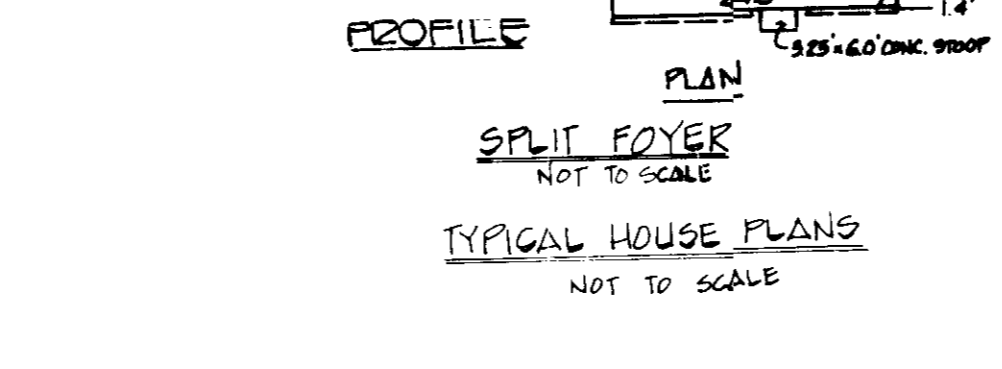 1.4'
PROFILE
3.25' x 6.0' CONC. STOOP
PLAN
SPLIT FOYER
NOT TO SCALE
TYPICAL HOUSE PLANS
NOT TO SCALE